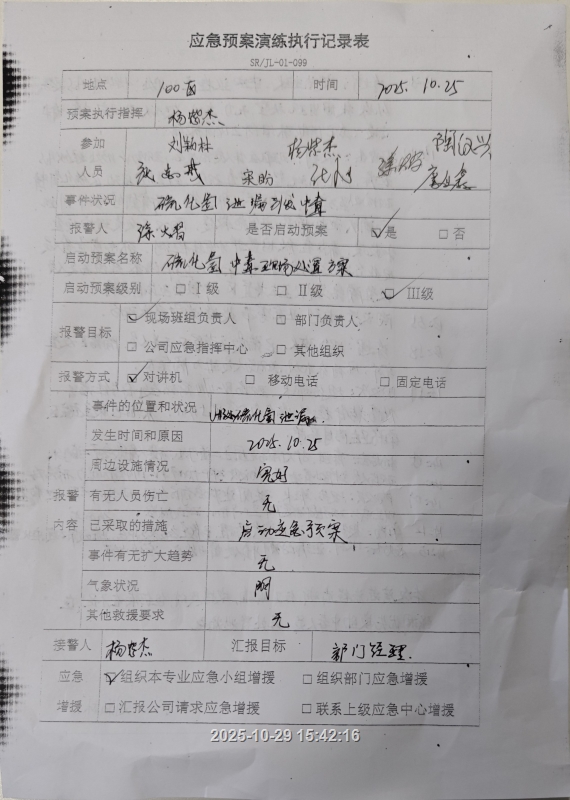 应急预案演练执行记录表
SR/JL-01-099
地点 100区 时间 2025.10.25
预案执行指挥 杨紫杰
参加人员 刘颖林 杨紫杰
事件状况 硫化氢泄漏引发中毒
报警人 是否启动预案 ☑是 □否
启动预案名称 硫化氢中毒现场处置方案
启动预案级别 □Ⅰ级 □Ⅱ级 ☑Ⅲ级
报警目标 ☑现场班组负责人 □部门负责人
□公司应急指挥中心 □其他组织
报警方式 ☑对讲机 □移动电话 □固定电话
报警内容
事件的位置和状况 硫化氢泄漏
发生时间和原因 2025.10.25
周边设施情况 完好
有无人员伤亡 无
已采取的措施 启动应急预案
事件有无扩大趋势 无
气象状况 晴
其他救援要求 无
接警人 杨紫杰 汇报目标 部门经理
应急增援 ☑组织本专业应急小组增援 □组织部门应急增援
□汇报公司请求应急增援 □联系上级应急中心增援
2025-10-29 15:42:16